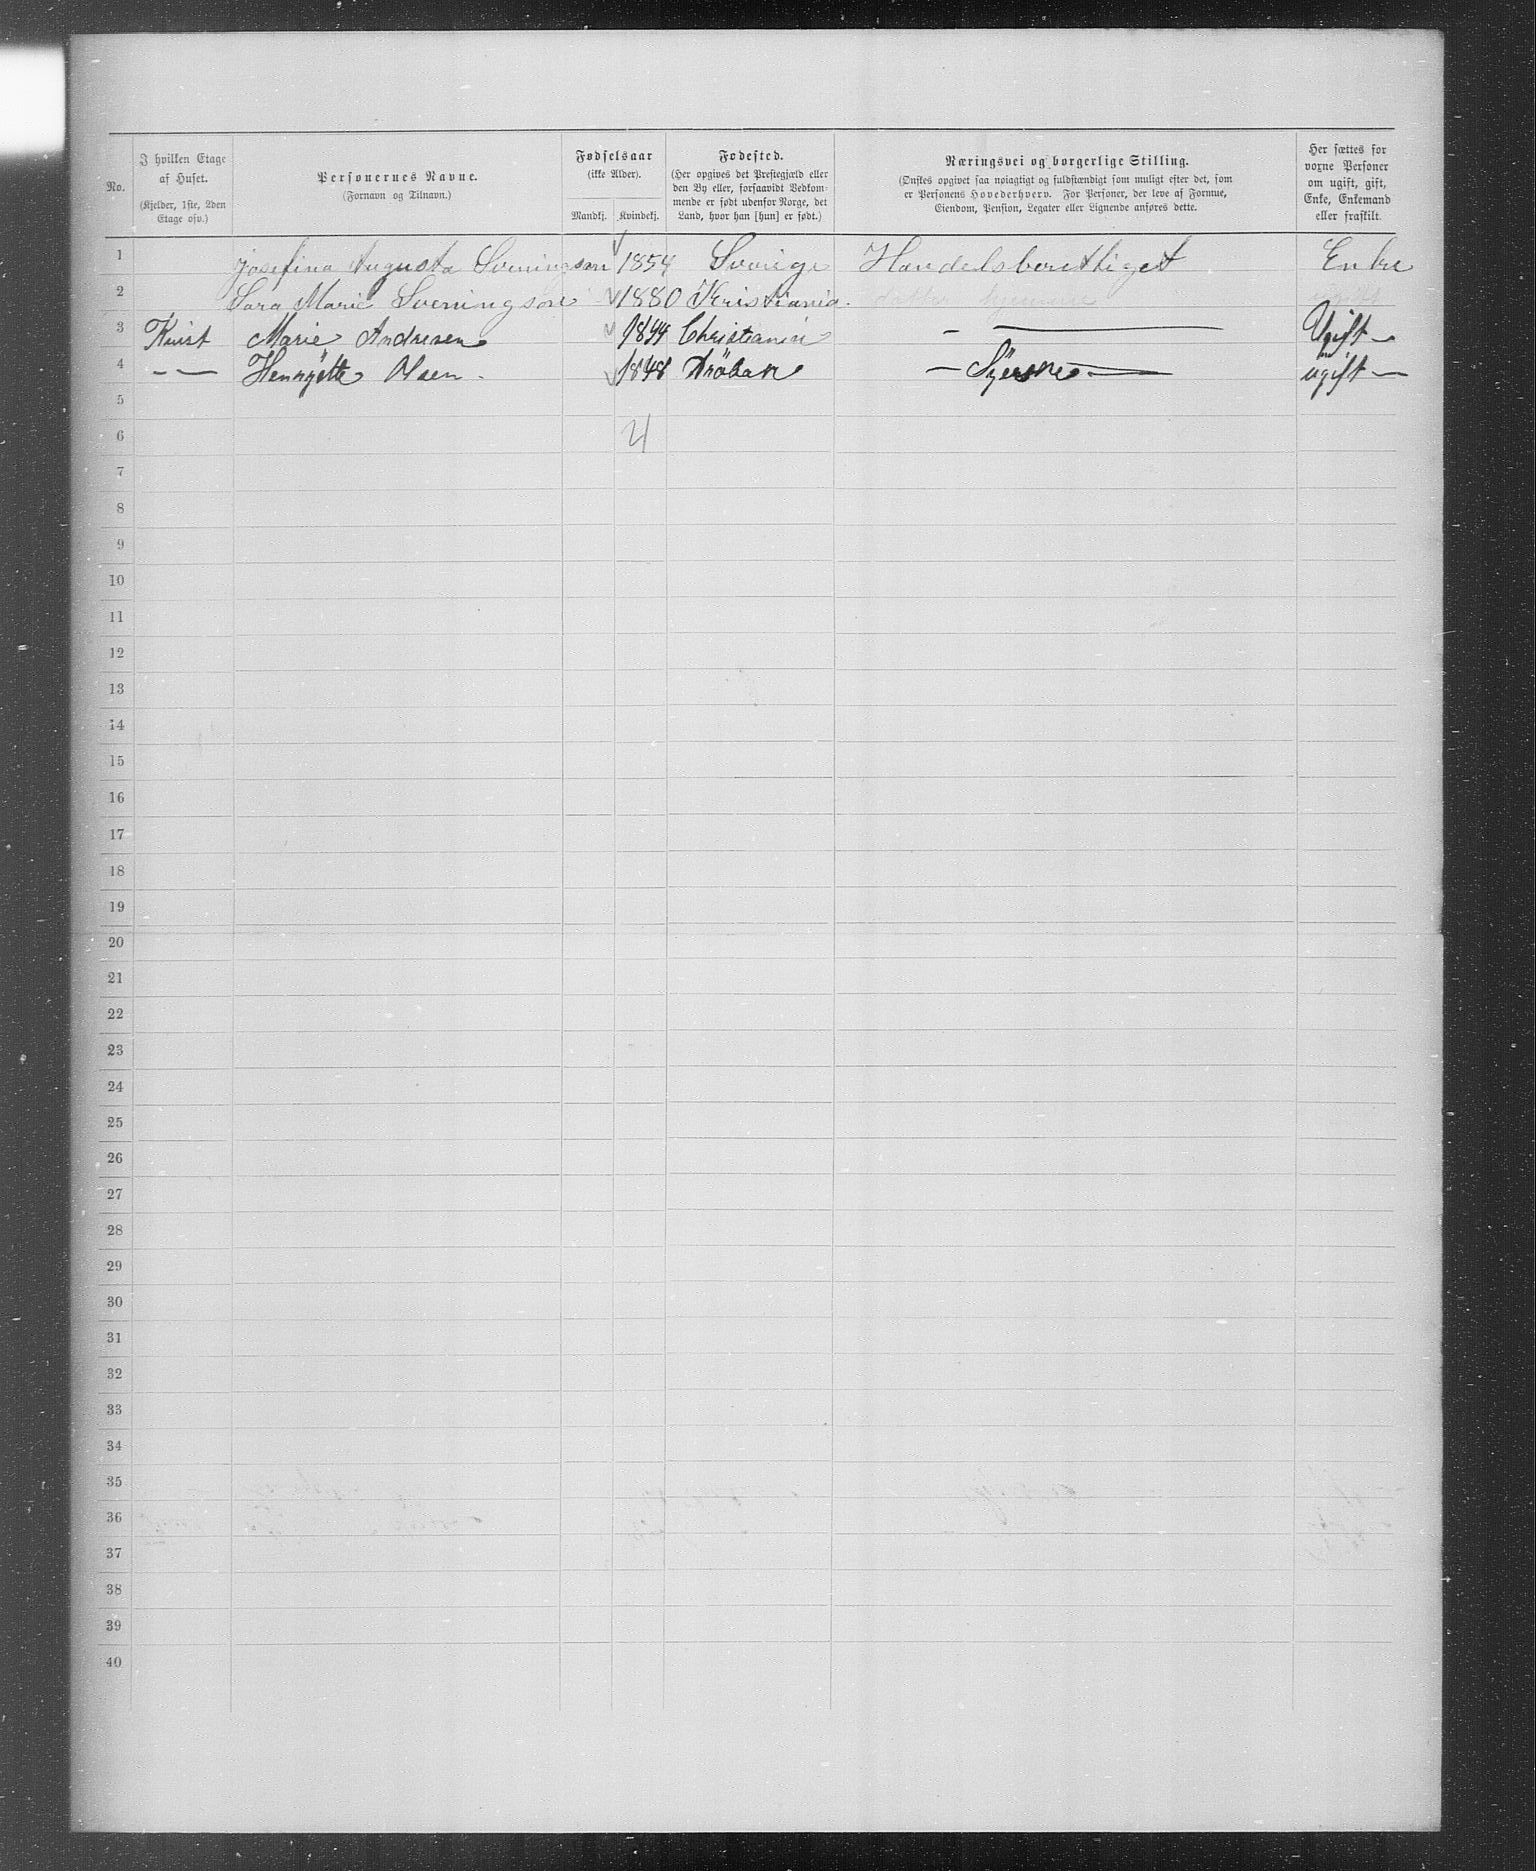 No.
I hvilken Etage af Huset.
(Kjelder, 1ste, 2den Etage osv.)
Personernes Navne.
(Fornavn og Tilnavn.)
Fødselsaar
(ikke Alder).
Mandkj. Kvindekj.
Fodested.
(Her opgives det Prestegjæld eller
den By eller, forsaavidt Vedkom-
mende er født udenfor Norge, det
Land, hvor han [hun] er født.)
Næringsvei og borgerlige Stilling.
(Ønskes opgivet saa nøiagtigt og fuldstændigt som muligt efter det, som
er Personens Hovederhverv. For Personer, der leve af Formue,
Eiendom, Pension, Legater eller Lignende anføres dette.
Her sættes for
voxne Personer
om ugift, gift,
Enke, Enkemand
eller fraskilt.
1 Josefina Augusta Sveningsen 1854 Sverige Handelsberettiget Enke
2 Sara Marie Sveningsen 1880 Kristiania. datter hjemme ugift
3 Kvist Marie Andresen 1844 Christania — Ugift —
4 — — Henrÿette Olsen. 1848 Dröbak — Sÿerske — ugift —
5
6 4
7
8
9
10
11
12
13
14
15
16
17
18
19
20
21
22
23
24
25
26
27
28
29
30
31
32
33
34
35
36
37
38
39
40